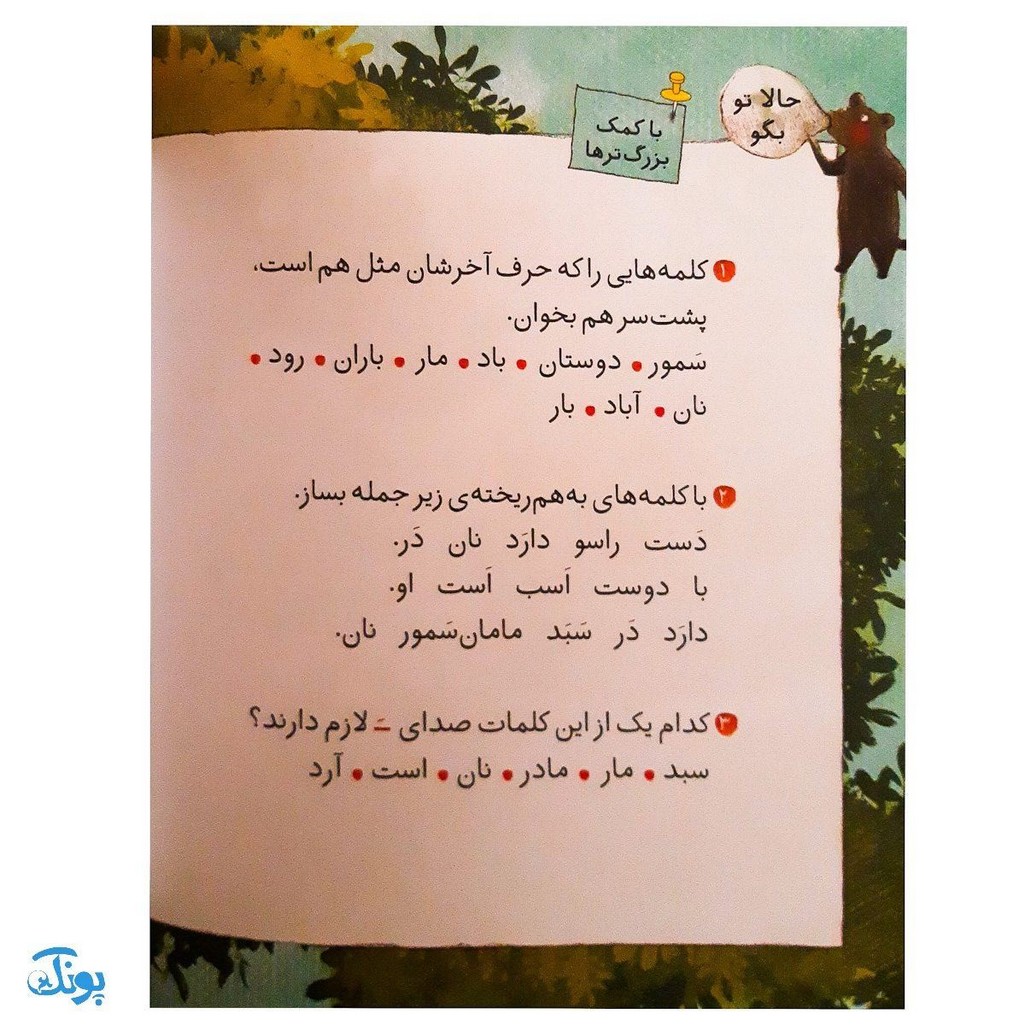 حالا تو
بگو
با کمک
بزرگ‌ترها
۱ کلمه‌هایی را که حرف آخرشان مثل هم است،
پشت‌سر هم بخوان.
سَمور • دوستان • باد • مار • باران • رود •
نان • آباد • بار
۲ با کلمه‌های به‌هم‌ریخته‌ی زیر جمله بساز.
دَست راسو دارَد نان دَر.
با دوست اَسب اَست او.
دارَد دَر سَبَد مامان‌سَمور نان.
۳ کدام یک از این کلمات صدای ـَ لازم دارند؟
سبد • مار • مادر • نان • است • آرد
پونک